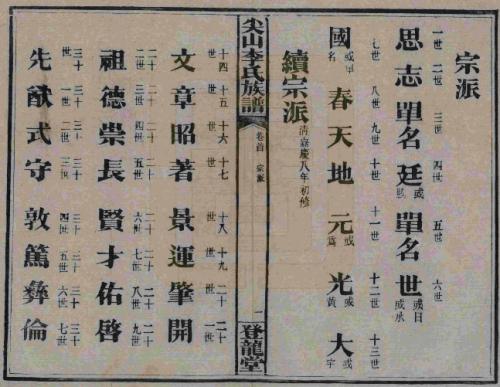 宗派
一世 二世 三世 四世 五世 六世
思志單名廷或單名世或日或承
七世 八世 九世 十世 十一世 十二世 十三世
國或單名春天地元或爲光或黃大或字
續宗派 清嘉慶八年初修
尖山李氏族譜 卷首 宗派 一 登龍堂
十四世 十五世 十六世 十七世 十八世 十九世 二十世 二十一世
文章昭著景運肇開
二十二世 二十三世 二十四世 二十五世 二十六世 二十七世 二十八世 二十九世
祖德崇長賢才佑啓
三十世 三十一世 三十二世 三十三世 三十四世 三十五世 三十六世 三十七世
先猷式守敦篤彝倫